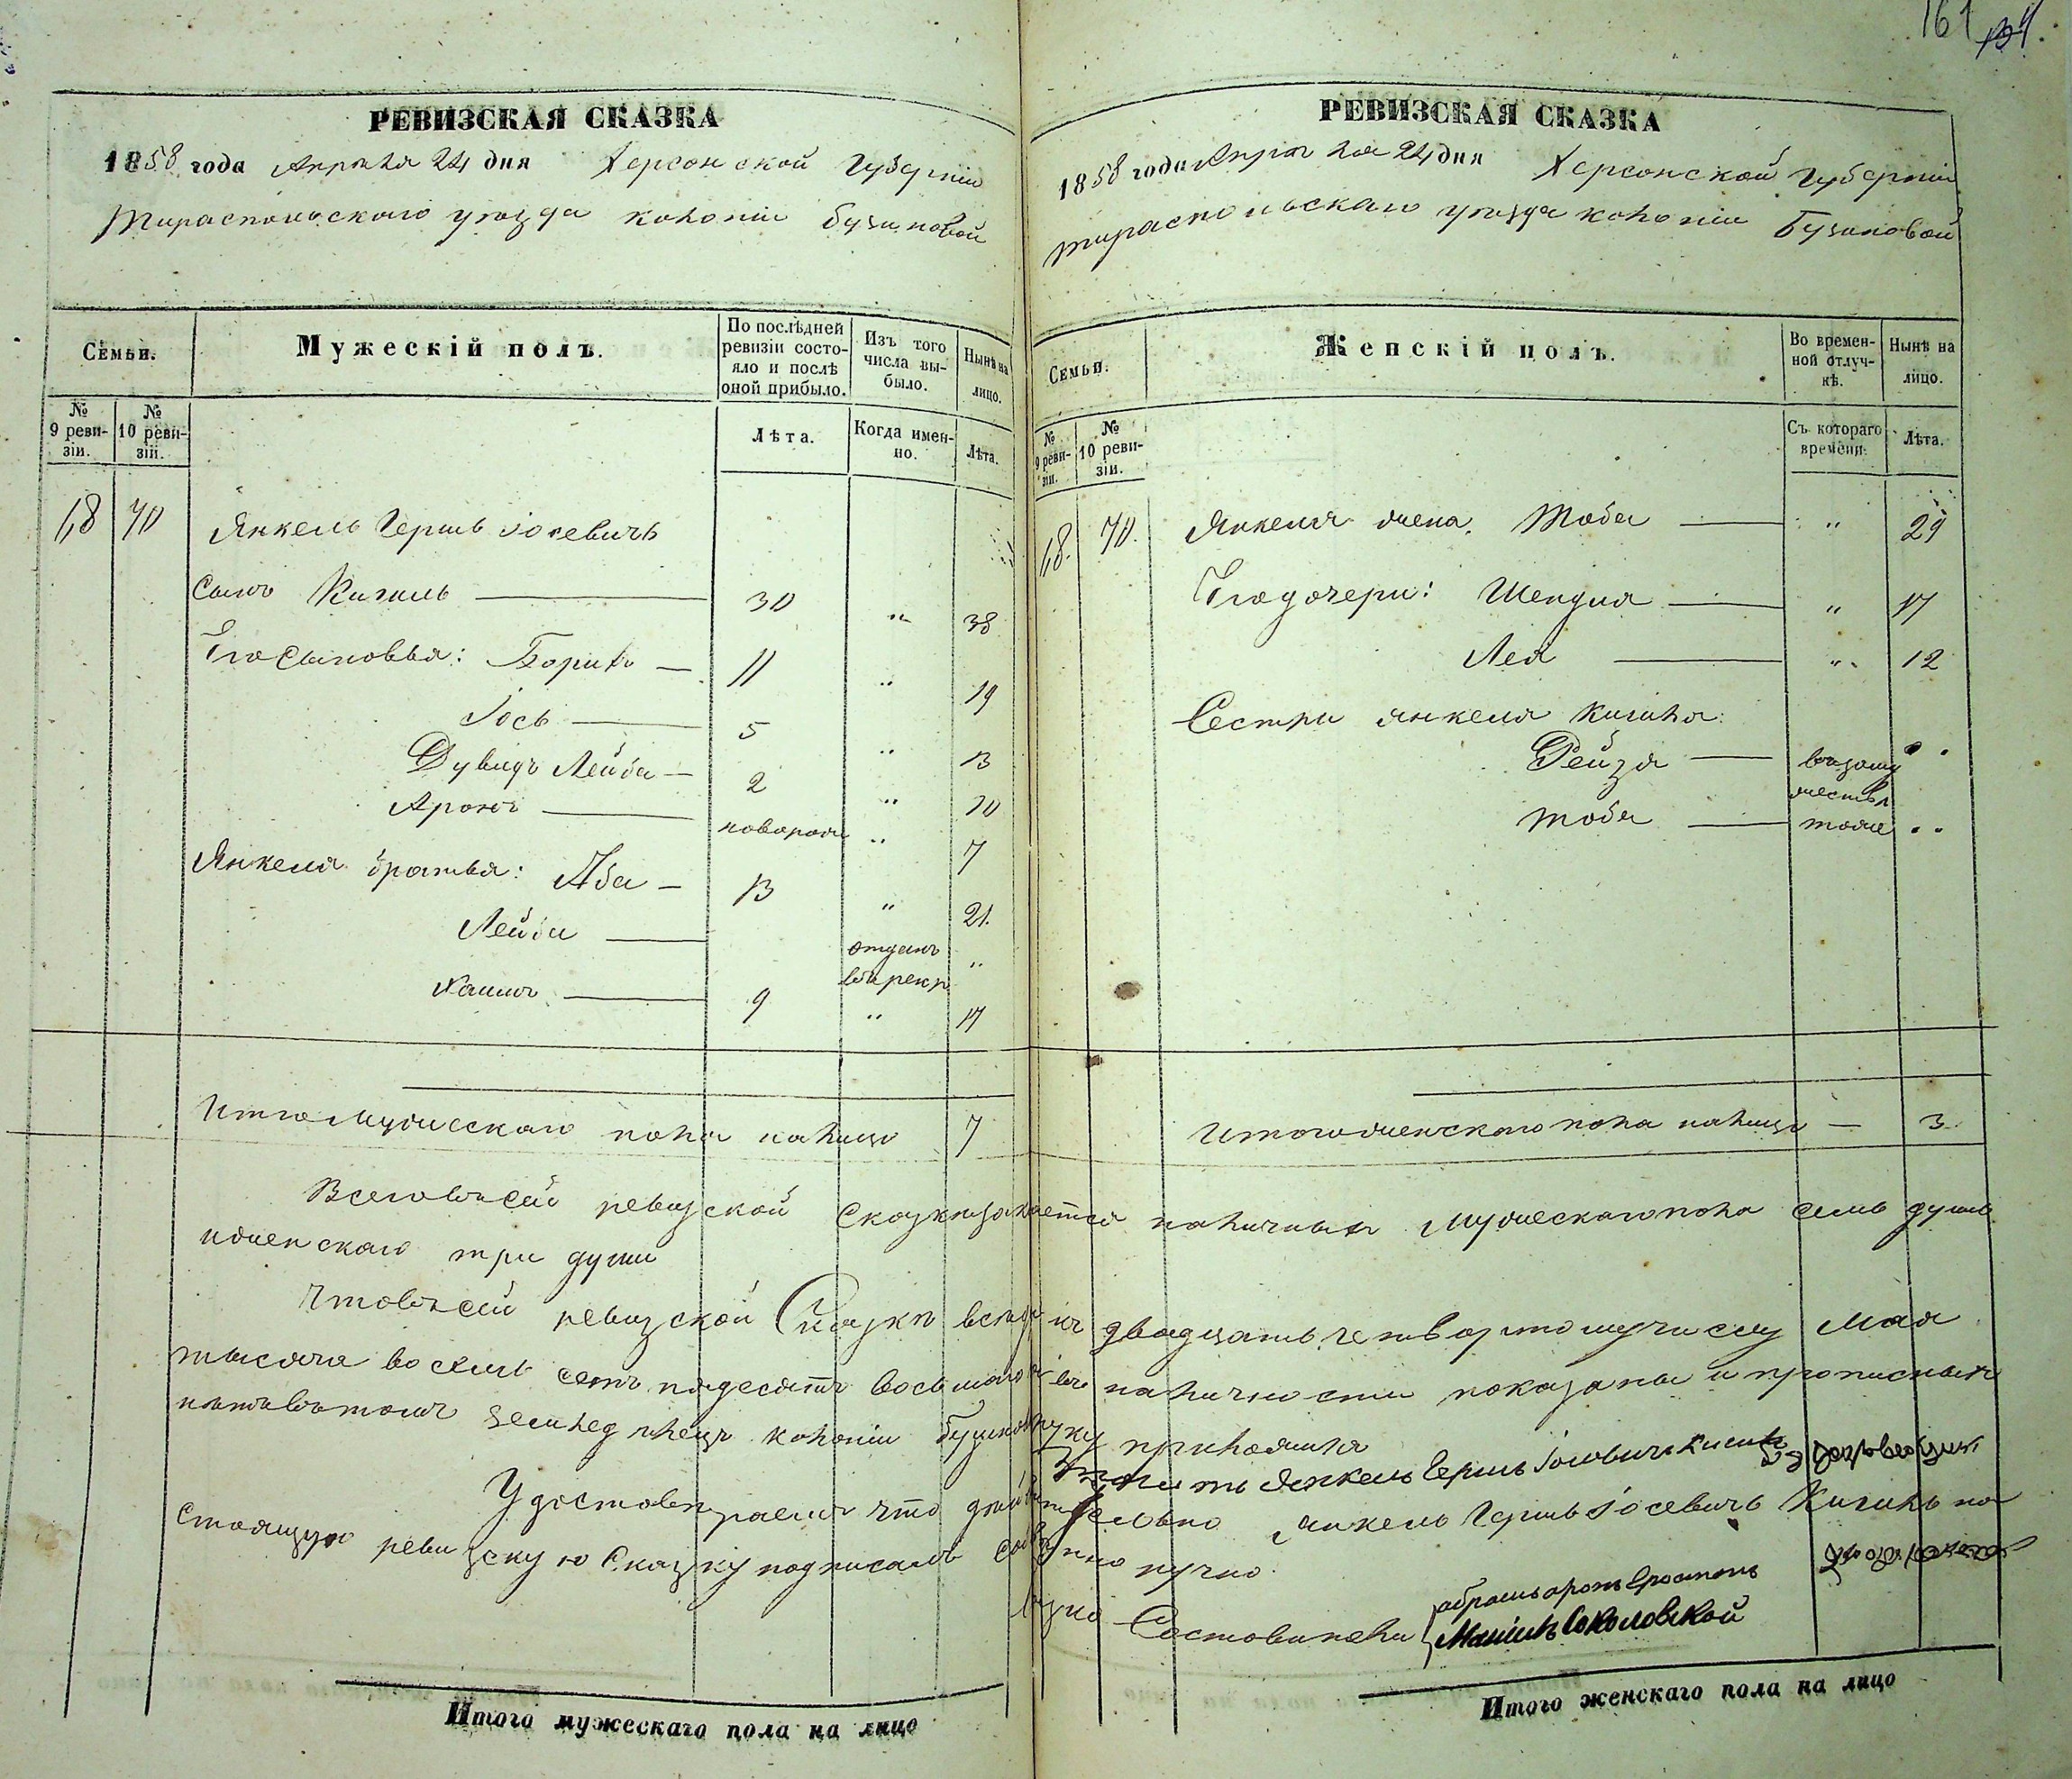 161
РЕВИЗСКАЯ СКАЗКА
1858 года Апреля 24 дня Херсонской Губерніи
Тираспольскаго уезда колоніи Бузиновой
Семьи.
Мужескій полъ.
По послѣдней ревизіи состояло и послѣ оной прибыло.
Изъ того числа выбыло.
Нынѣ на лицо.
№ 9 ревизіи.
№ 10 ревизіи.
Лѣта.
Когда именно.
Лѣта.
68 70 Янкель Гершь Іосевичь
Сынъ Кигиль 30 " 38
Его Сыновья: Борихъ 11 " 19
Іось 5 " 13
Дувидъ Лейба 2 " 10
Аронъ новорож " 7
Янкеля братья: Аба 13 " 21.
Лейба отданъ въ рекр "
Хаимъ 9 " 17
Итого Мужескаго пола налицо 7
РЕВИЗСКАЯ СКАЗКА
1858 года Апреля 24 дня Херсонской Губерніи
Тираспольскаго уезда колоніи Бузиновой
Семьи.
Женскій полъ.
Во временной отлучкѣ.
Нынѣ на лицо.
№ 9 ревизіи.
№ 10 ревизіи.
Съ котораго времени.
Лѣта.
68. 70. Янкеля жена. Тоба " 29
Его дочери: Шендля " 17
Лея " 12
Сестри Янкеля Кигиля:
Рейзя взамужестве
Тоба тоже
Итого женскаго пола налицо 3
Всего въ сей ревизской Сказки заключается наличныхъ Мужескаго пола семь душъ
и женскаго три души
Что въ сей ревизской Сказки все къ двадцать четвертому числу Мая
тысяча восемь сотъ пядесятъ восьмаго въ наличности показаны и прописныхъ
нетъ въ томъ земледелецъ колоніи Бузиновой руку приложилъ
Янкель Гершь Іосевичь
Удостоверяемъ что действительно Янкель Гершь Іосевичь Кигиль на
стоящую ревизскую Сказку подписалъ собственноручно.
Составители
Соколовской
Итого мужескаго пола на лицо
Итого женскаго пола на лицо